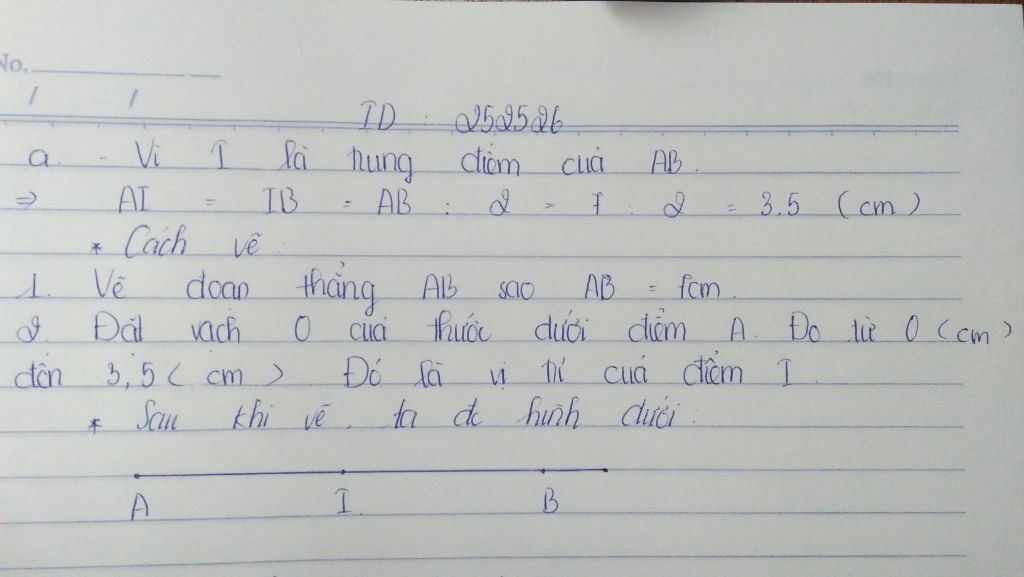 No.
/ /
ID : 252526
a. - Vì I là trung điểm của AB.
⇒ AI = IB = AB : 2 = 7 : 2 = 3.5 (cm)
* Cách vẽ :
1. Vẽ đoạn thẳng AB sao AB = 7cm.
2. Đặt vạch 0 của thước dưới điểm A. Đo từ 0 (cm)
đến 3,5 (cm) Đó là vị trí của điểm I.
* Sau khi vẽ, ta đc hình dưới :
A I B